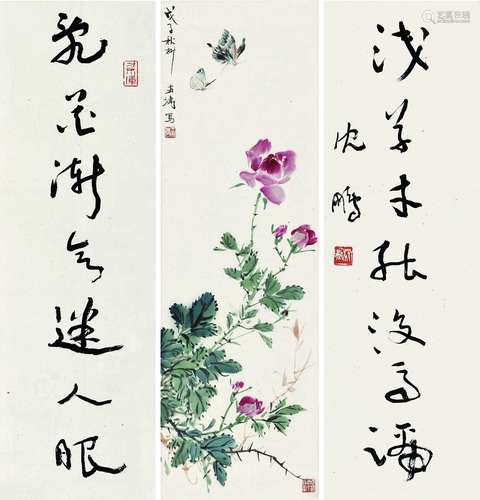 浅草才能没马蹄
沈鹏
戊子秋
涛写
乱花渐欲迷人眼